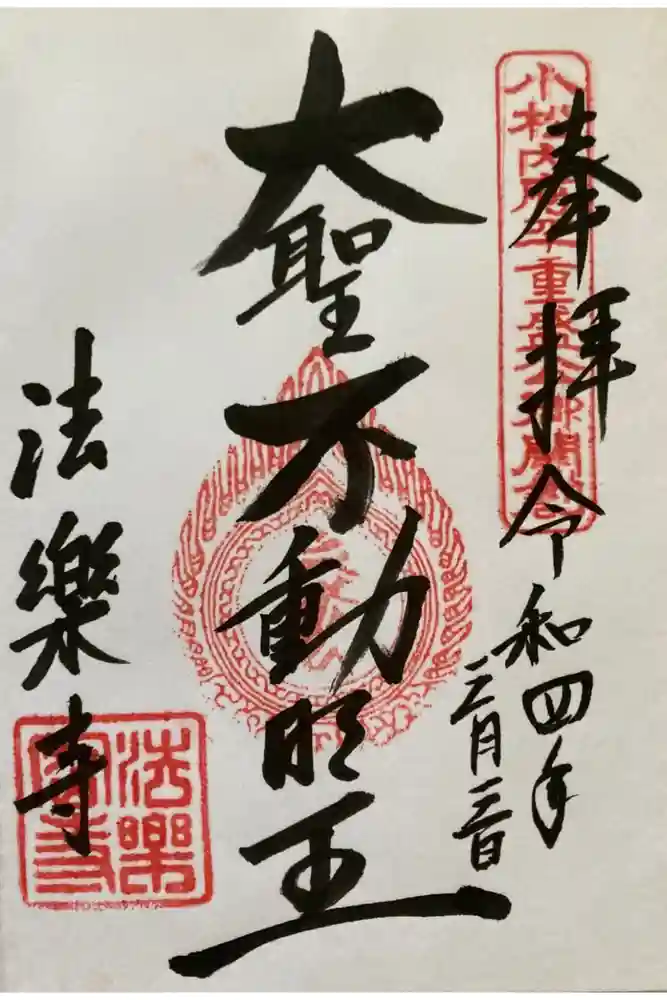 奉拝 令和四年
三月三日
小松内府平重盛公御開基
大聖不動明王
法樂寺
法樂寺